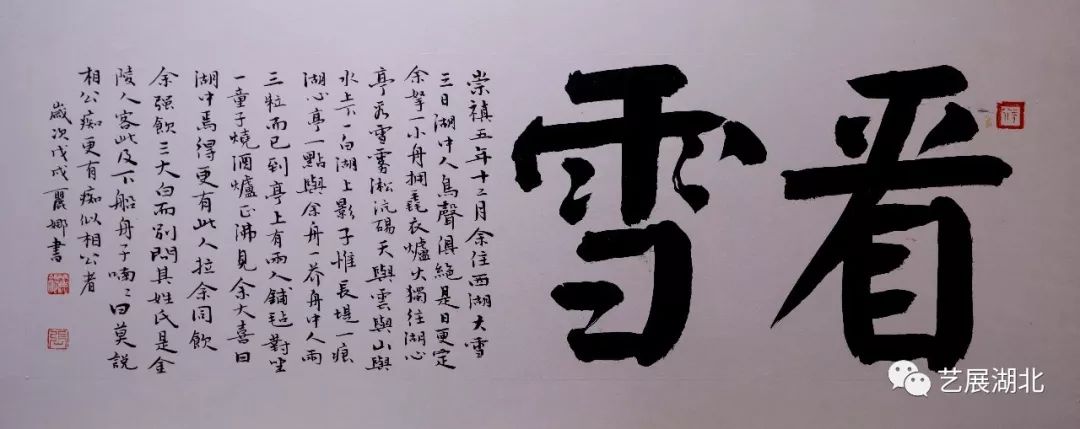 看雪
崇禎五年十二月余住西湖大雪
三日湖中人鳥聲俱絕是日更定
余拏一小舟擁毳衣爐火獨往湖心
亭看雪霧淞沆碭天與雲與山與
水上下一白湖上影子惟長堤一痕
湖心亭一點與余舟一芥舟中人兩
三粒而已到亭上有兩人鋪毡對坐
一童子燒酒爐正沸見余大喜曰
湖中焉得更有此人拉余同飲
余强飲三大白而別問其姓氏是金
陵人客此及下船舟子喃〻曰莫說
相公痴更有痴似相公者
歲次戊戌麗娜書
艺展湖北